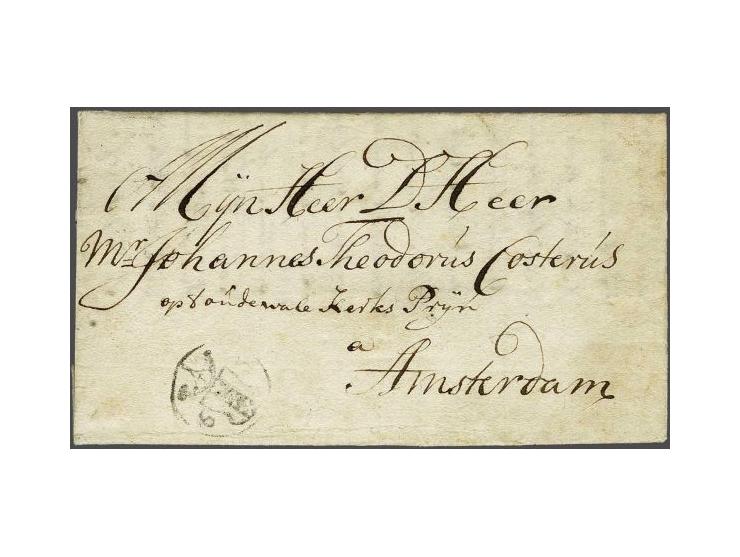 Mÿn Heer D Heer
Mr Johannes Theodorús Costerús
op t oúdewale Kerks Prÿn
a
Amsterdam